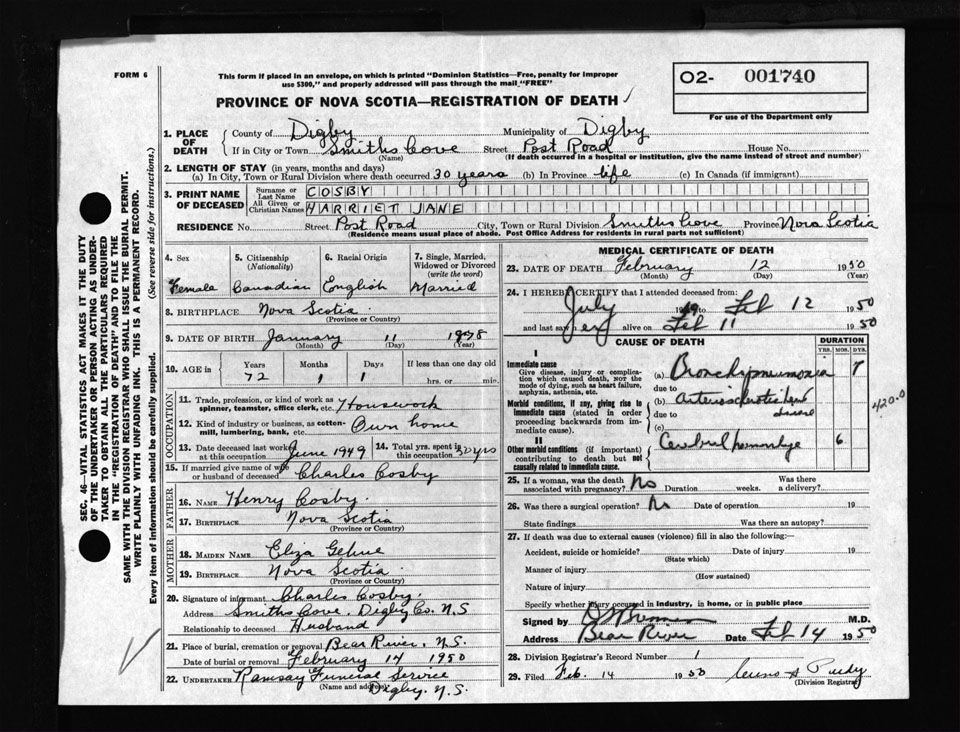 FORM 6
This form if placed in an envelope, on which is printed "Dominion Statistics—Free, penalty for improper
use $300," and properly addressed will pass through the mail "FREE"
PROVINCE OF NOVA SCOTIA—REGISTRATION OF DEATH
O2- 001740
For use of the Department only
1. PLACE OF DEATH
County of Digby Municipality of Digby
If in City or Town Smiths Cove Street Post Road House No.
(Name) (If death occurred in a hospital or institution, give the name instead of street and number)
2. LENGTH OF STAY (in years, months and days)
(a) In City, Town or Rural Division where death occurred 30 years (b) In Province life (c) In Canada (if immigrant)
3. PRINT NAME OF DECEASED
Surname or Last Name COSBY
All Given or Christian Names HARRIET JANE
RESIDENCE No. Street Post Road City, Town or Rural Division Smiths Cove Province Nova Scotia
(Residence means usual place of abode. Post Office Address for residents in rural parts not sufficient)
4. Sex 5. Citizenship (Nationality) 6. Racial Origin 7. Single, Married, Widowed or Divorced (write the word)
Female Canadian English Married
8. BIRTHPLACE Nova Scotia
(Province or Country)
9. DATE OF BIRTH January 11 1878
(Month) (Day) (Year)
10. AGE in Years Months Days If less than one day old
72 1 1 hrs. or min.
OCCUPATION
11. Trade, profession, or kind of work as spinner, teamster, office clerk, etc. Housework
12. Kind of industry or business, as cotten-mill, lumbering, bank, etc. Own home
13. Date deceased last worked at this occupation June 1949 14. Total yrs. spent in this occupation 50 yrs
15. If married give name of wife or husband of deceased Charles Cosby
FATHER
16. NAME Henry Cosby.
17. BIRTHPLACE Nova Scotia
(Province or Country)
MOTHER
18. MAIDEN NAME Eliza
19. BIRTHPLACE Nova Scotia
(Province or Country)
20. Signature of informant Charles Cosby.
Address Smiths Cove, Digby Co. N.S
Relationship to deceased Husband
21. Place of burial, cremation or removal Bear River, N.S.
Date of burial or removal February 14 1950
22. UNDERTAKER Ramsay Funeral Service
(Name and address) Digby. N.S.
MEDICAL CERTIFICATE OF DEATH
23. DATE OF DEATH February 12 1950
(Month) (Day)
24. I HEREBY CERTIFY that I attended deceased from:
July 1949 to Feb 12 1950
and last saw her alive on Feb 11 1950
CAUSE OF DEATH DURATION
YRS. MOS. DYS.
I
Immediate cause
Give disease, injury or complication which caused death, not the mode of dying, such as heart failure, asphyxia, asthenia, etc.
(a) Bronchopneumonia 7
due to
Morbid conditions, if any, giving rise to immediate cause (stated in order proceeding backwards from immediate cause).
(b) Arteriosclerotic heart disease
due to
(c)
420.0
II
Other morbid conditions (if important) contributing to death but not causally related to immediate cause.
Cerebral hemorrhage 6
25. If a woman, was the death associated with pregnancy? No Duration weeks. Was there a delivery?
26. Was there a surgical operation? No Date of operation 19
State findings Was there an autopsy?
27. If death was due to external causes (violence) fill in also the following:—
Accident, suicide or homicide? Date of injury 19
(State which)
Manner of injury
(How sustained)
Nature of injury
Specify whether injury occured in Industry, in home, or in public place
Signed by M.D.
Address Bear River Date Feb 14 1950
28. Division Registrar's Record Number 1
29. Filed Feb. 14 1950 Purdy
(Division Registrar)
SEC. 46—VITAL STATISTICS ACT MAKES IT THE DUTY
OF THE UNDERTAKER OR PERSON ACTING AS UNDER-
TAKER TO OBTAIN ALL THE PARTICULARS REQUIRED
IN THE "REGISTRATION OF DEATH" AND TO FILE THE
SAME WITH THE DIVISION REGISTRAR WHO SHALL ISSUE THE BURIAL PERMIT.
WRITE PLAINLY WITH UNFADING INK. THIS IS A PERMANENT RECORD.
Every item of information should be carefully supplied. (See reverse side for instructions.)